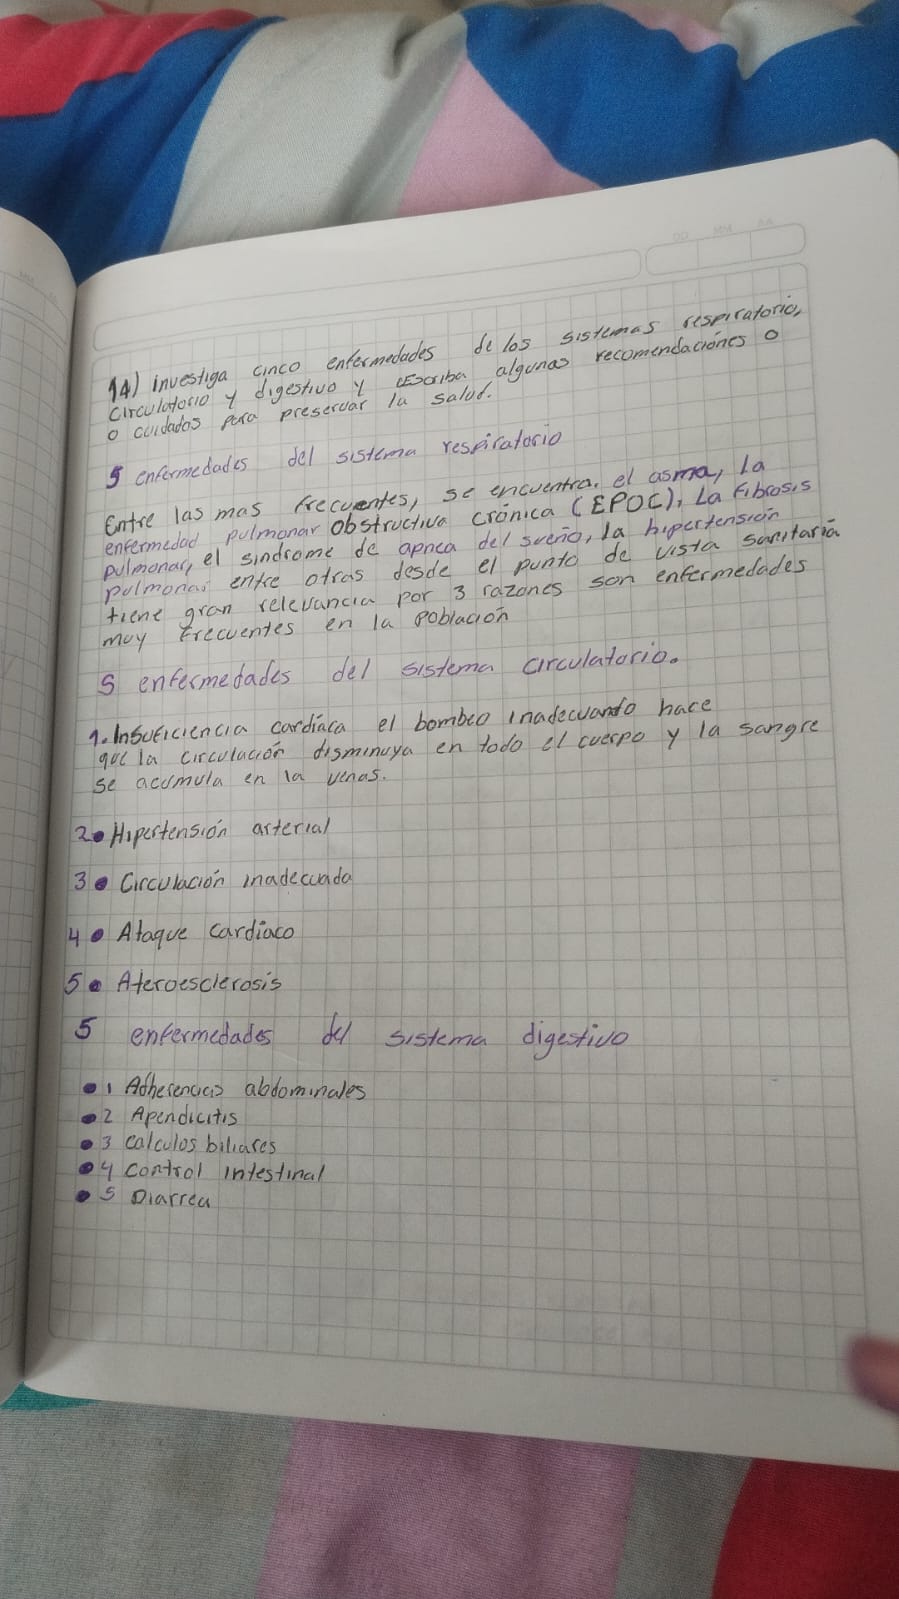 DD MM AA
14) investiga cinco enfermedades de los sistemas respiratorio,
circulatorio y digestivo y escriba algunas recomendaciónes o
o cuidados para preservar la salud.
5 enfermedades del sistema respiratorio
Entre las mas frecuentes, se encuentra. el asma, la
enfermedad pulmonar obstructiva crónica (EPOC), La Fibrosis
pulmonar, el sindrome de apnea del sueño, la hipertensión
pulmonar entre otras desde el punto de vista sanitaria
tiene gran relevancia por 3 razones son enfermedades
muy frecuentes en la Población
5 enfermedades del sistema circulatorio.
1. Insuficiencia cardíaca el bombeo inadecuando hace
que la circulación disminuya en todo el cuerpo y la sangre
se acumula en la venas.
2• Hipertensión arterial
3• Circulación inadecuada
4• Ataque cardíaco
5• Ateroesclerosis
5 enfermedades del sistema digestivo
• 1 Adherencias abdominales
• 2 Apendicitis
• 3 calculos biliares
• 4 control intestinal
• 5 Diarrea